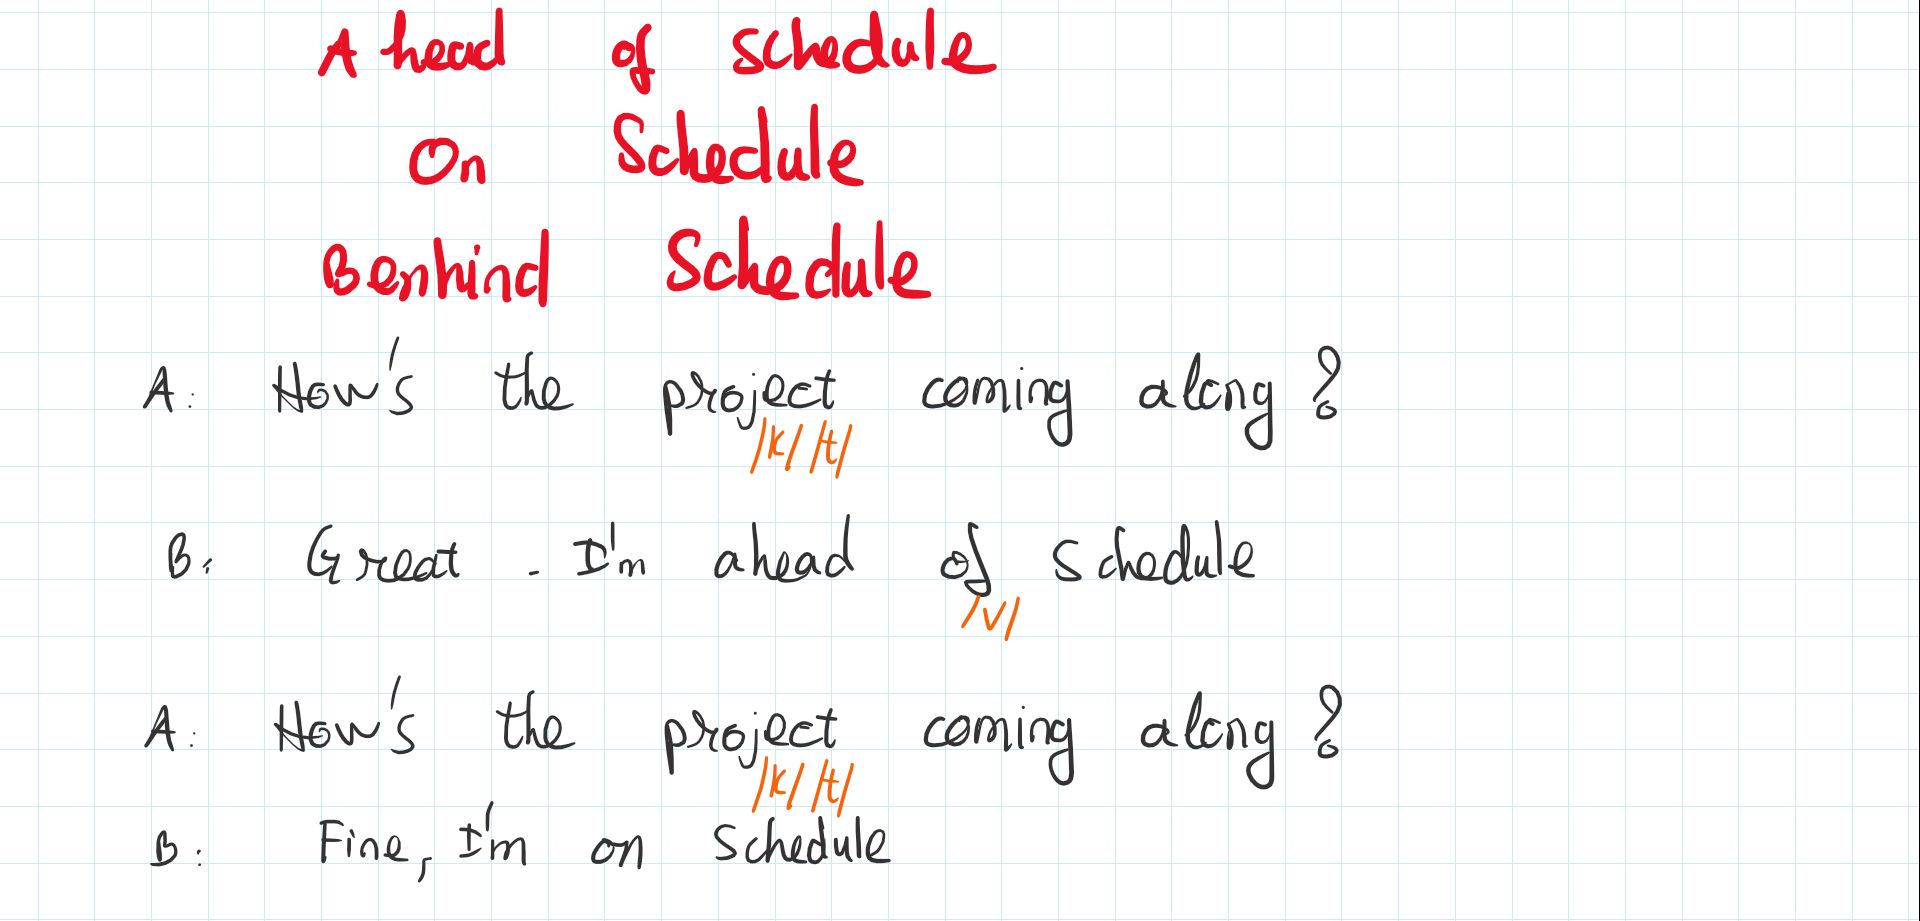 Ahead of schedule
On Schedule
Benhind Schedule
A: How's the project coming along?
/k/ /t/
B: Great. I'm ahead of schedule
/v/
A: How's the project coming along?
/k/ /t/
B: Fine, I'm on schedule